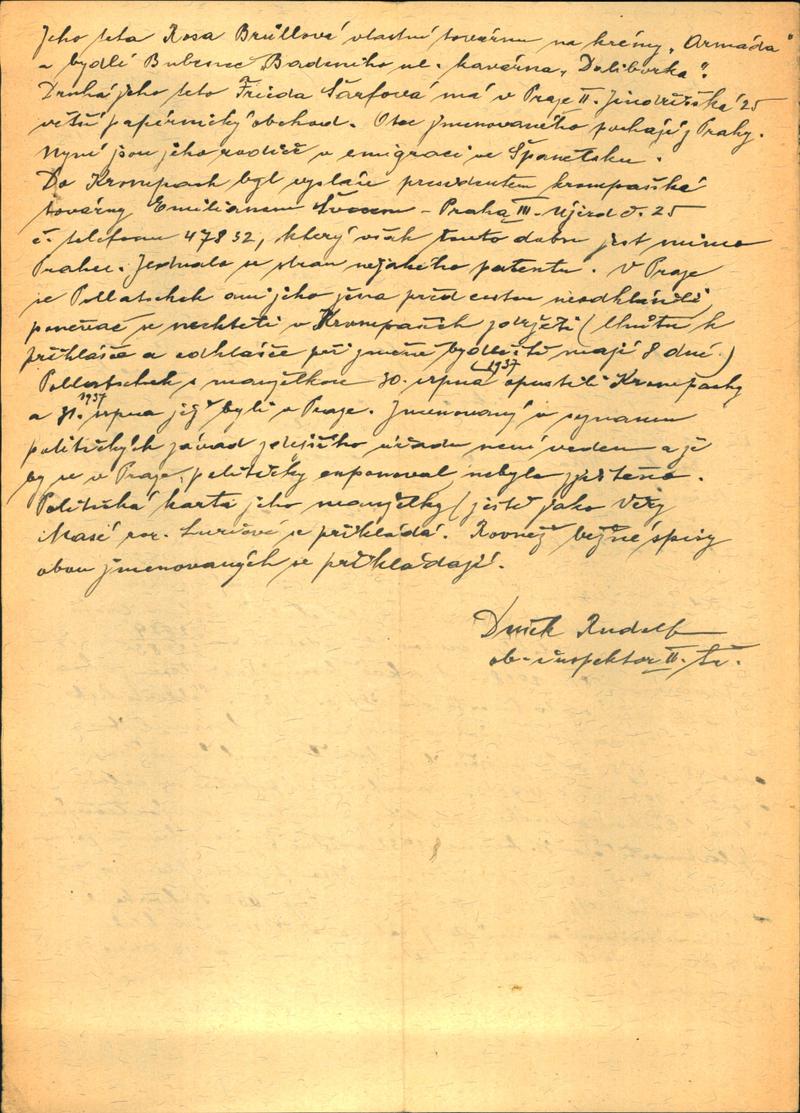 Jeho teta Rosa Brüllová vlastní továrnu na krémy „Armáda"
a bydlí Bubeneč Badeniho ul. kavárna „Daliborka".
Druhá jeho teta Frieda Šarfová má v Praze II. Jindřišská 25
větší papírnický obchod. Otec jmenovaného pochází z Prahy.
Nyní jsou jeho rodiče v emigraci ve Španělsku.
Do Krompach byl vyslán presidentem krompašské
továrny Emilianem - Praha III. Újezd č. 25
č. telefonu 47832, který však touto dobou jest mimo
Prahu. Jednalo se stran nějakého patentu. V Praze
se Pollatschek ani jeho žena před cestou neodhlásili,
poněvač se nechtěli v Krompaších zdržeti (lhůtu k
přihlášce a odhlášce při změně bydliště mají 8 dní.)
Pollatschek s manželkou 30. srpna 1937 opustili Krompachy
a 31. srpna 1937 již byli v Praze. Jmenovaný v seznamu
politických závad zdejšího úřadu není veden a že
by se v Praze politicky exponoval nebylo zjištěno.
Politická karta jeho manželky (ještě jako Věry
roz. Luriové se přikládá. Rovněž běžné spisy
obou jmenovaných se přikládají.
Rudolf
ob-inspektor II. tř.